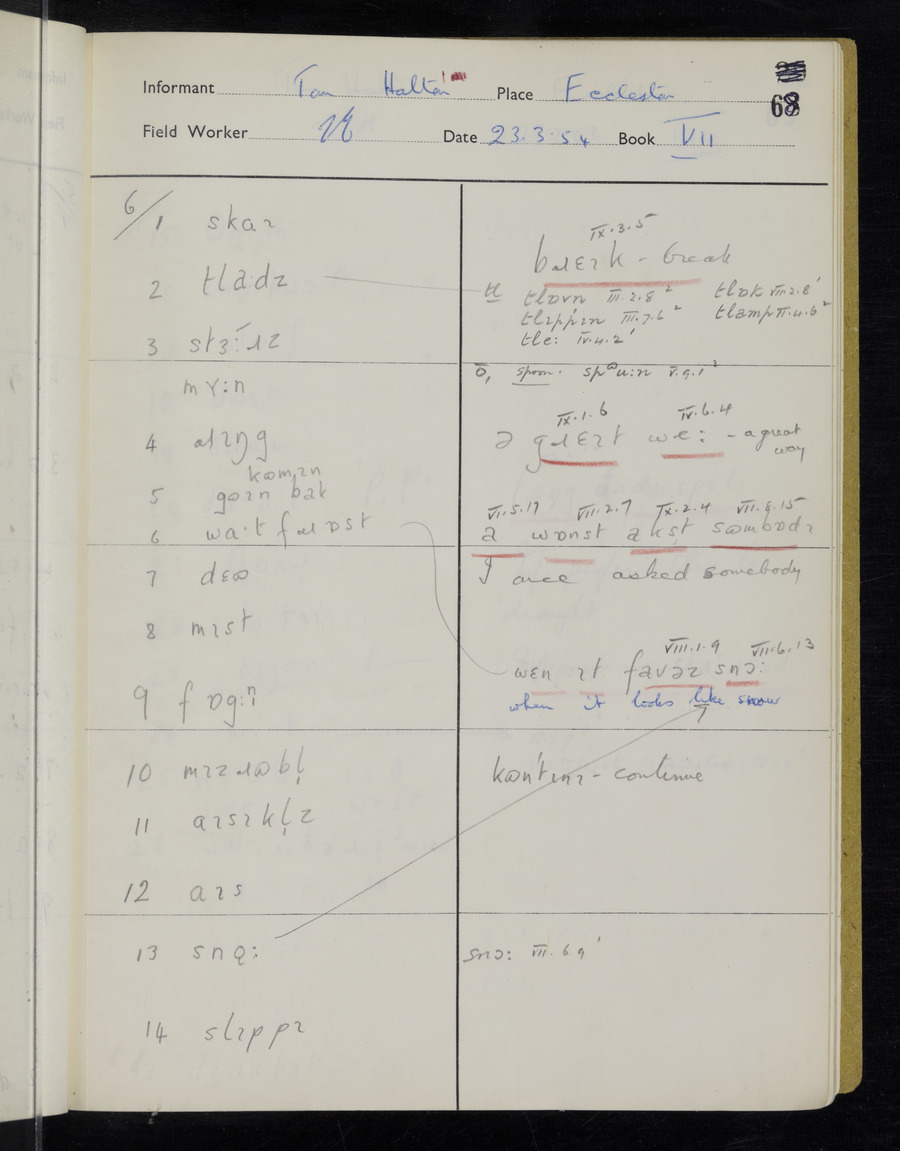 Informant Tom Halton Place Eccleston
68
Field Worker Date 23.3.54 Book VII
6/1 skaɪ
2 tladz
3 stɜ:ɹz
mʏ:n
4 aɹɪŋg
kʊmɪn
5 goɪn bak
6 wa:t fɹɒst
7 dɛʊ
8 mɪst
9 fɒg:
10 mɪzɹʊbl̩
11 aɪsɪkl̩z
12 aɪs
13 snɔ̨:
14 slɪppɪ
IX.3.5
bɹɛɪk - break
tl tlɒvn III.2.8² tlɒk VII.2.8¹
tlɪppɪn III.7.6² tlamp II.4.6²
tle: IV.4.2¹
ō, spoon. spᶷu:n V.9.1³
IX.1.6 IV.6.4
ə gɹɛɪt we: - a great way
VI.5.17 VII.2.7 IX.2.4 VII.8.15
a wɒnst akst sʊmbɒdɪ
I once asked somebody
VIII.1.9 VII.6.13
wɛn ɪt favəz snɔ:
when it looks like snow
7
kʊn'tɪnɪ - continue
snɔ: VII.6 9¹